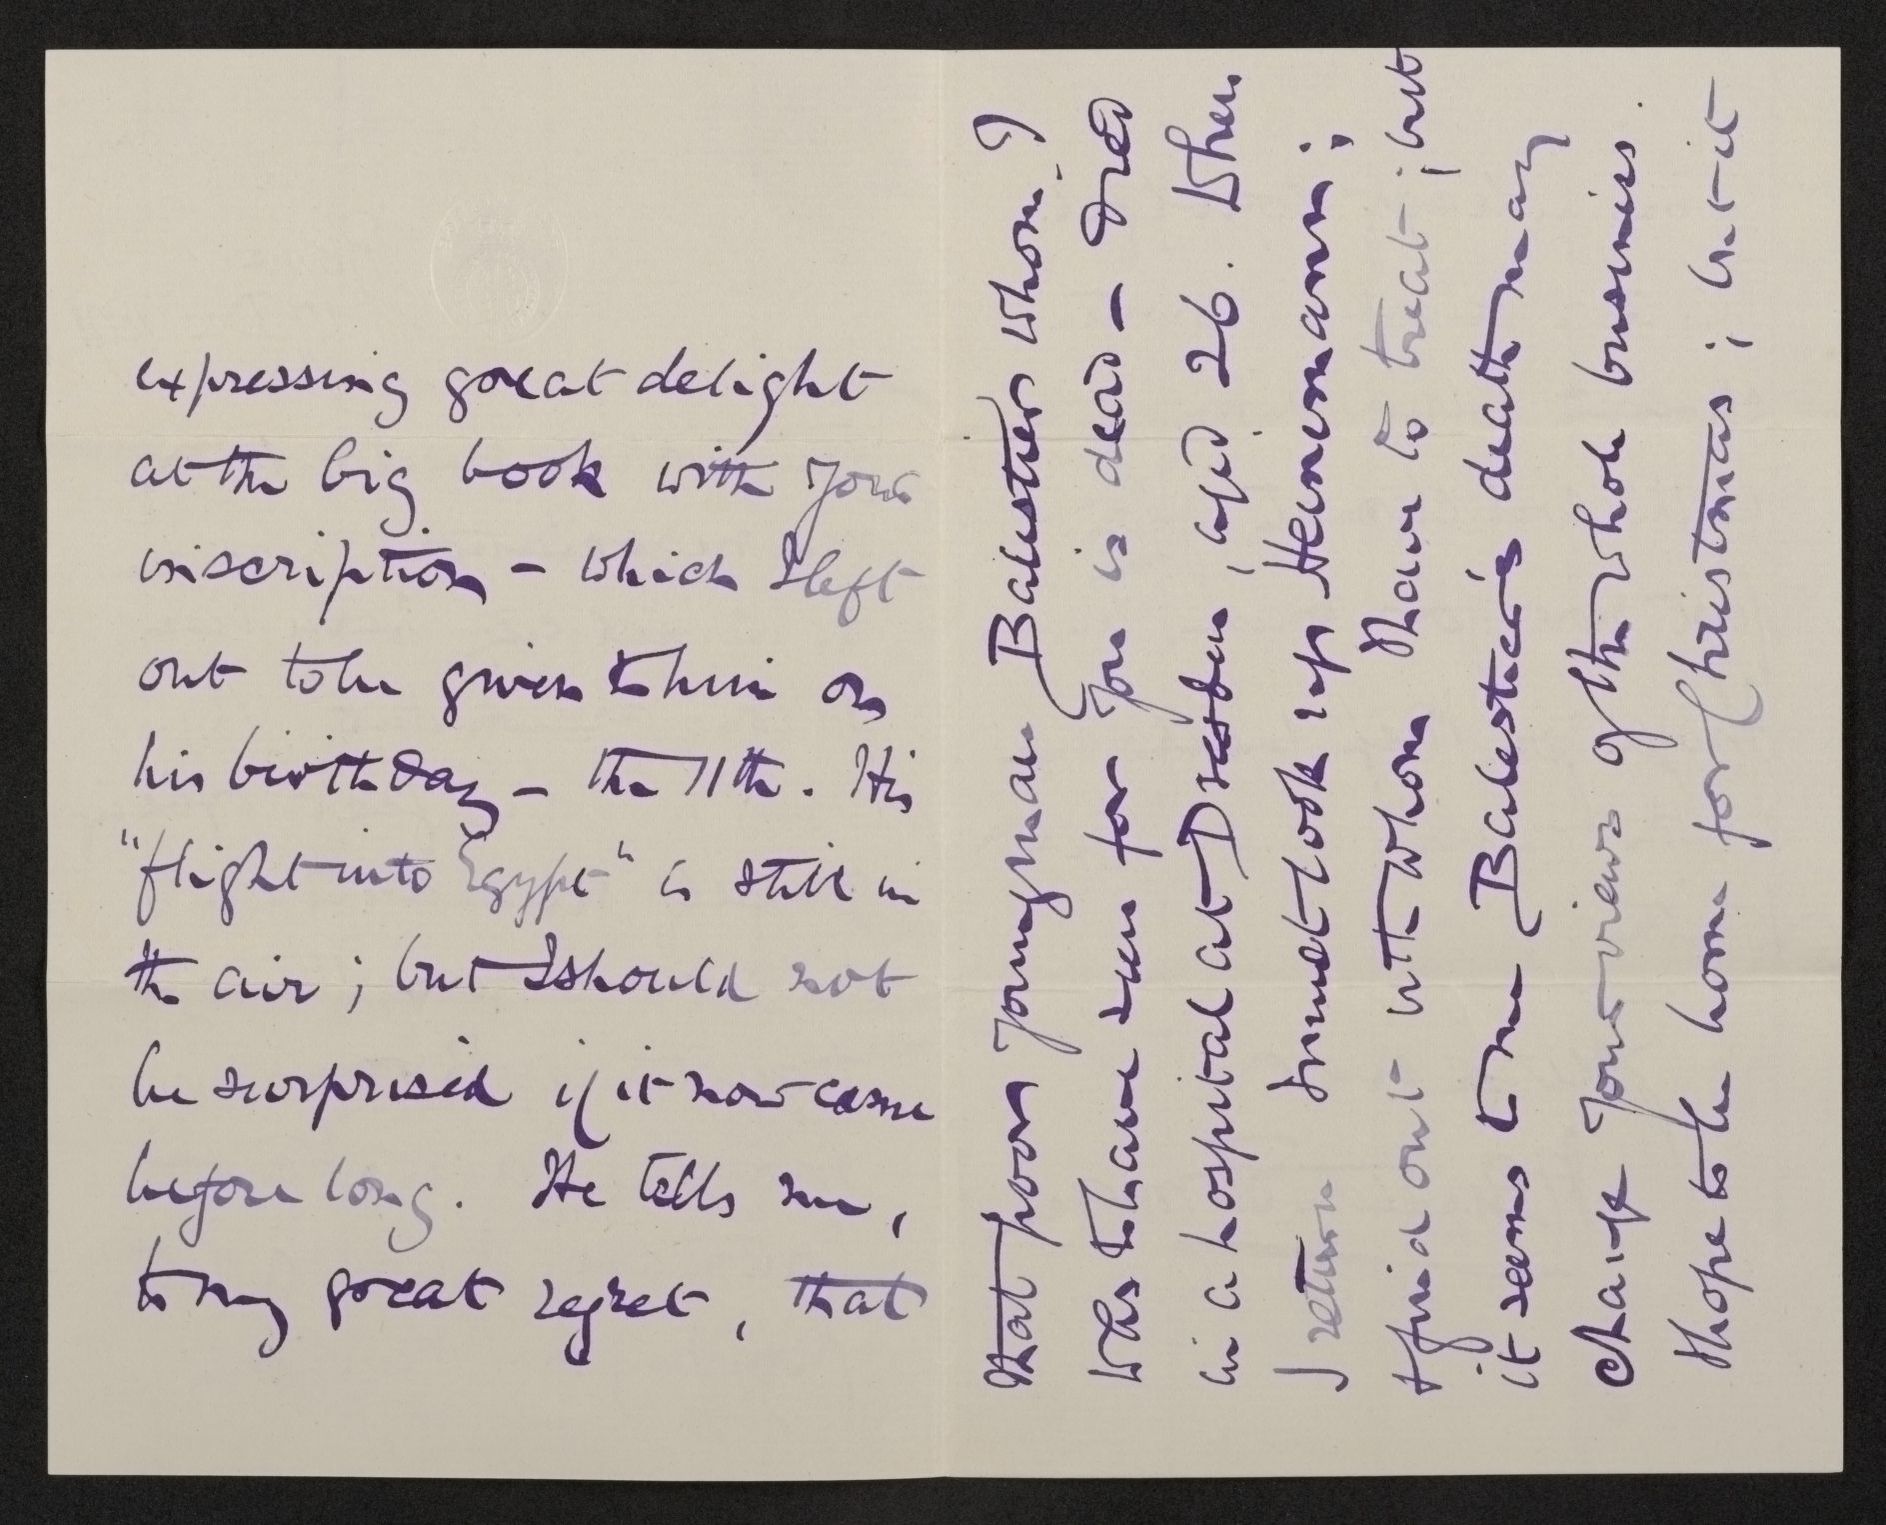 expressing great delight
at the big book with your
inscription – which I left
out to be given to him on
his birthday – the 11th. His
"flight into Egypt" is still in
the air; but I should not
be surprised if it now came
before long. He tells me,
to my great regret, that
that poor young man Balestier whom I
was to have seen for you is dead – died
in a hospital at Dresden, aged 26. When
I return I must look up Heinemann;
& find out with whom I have to treat; but
it seems to me Balestier's death may
change your views of the whole business.
I hope to be home for Christmas; but it